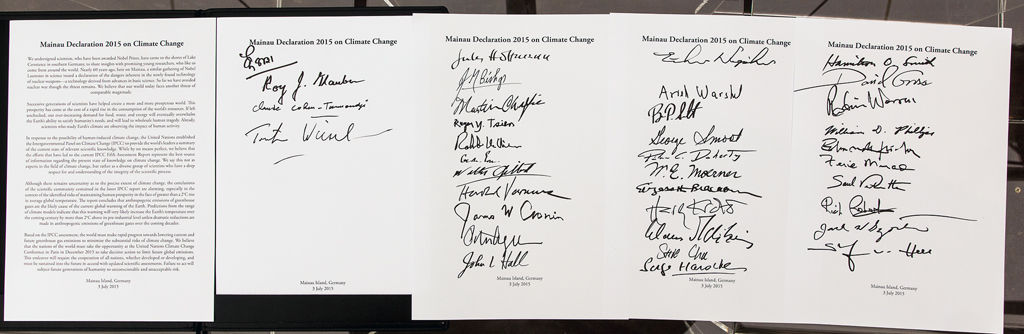 Mainau Declaration 2015 on Climate Change
We undersigned scientists, who have been awarded Nobel Prizes, have come to the shores of Lake
Constance in southern Germany, to share insights with promising young researchers, who like us
come from around the world. Nearly 60 years ago, here on Mainau, a similar gathering of Nobel
Laureates in science issued a declaration of the dangers inherent in the newly found technology
of nuclear weapons—a technology derived from advances in basic science. So far we have avoided
nuclear war though the threat remains. We believe that our world today faces another threat of
comparable magnitude.
Successive generations of scientists have helped create a more and more prosperous world. This
prosperity has come at the cost of a rapid rise in the consumption of the world's resources. If left
unchecked, our ever-increasing demand for food, water, and energy will eventually overwhelm
the Earth's ability to satisfy humanity's needs, and will lead to wholesale human tragedy. Already,
scientists who study Earth's climate are observing the impact of human activity.
In response to the possibility of human-induced climate change, the United Nations established
the Intergovernmental Panel on Climate Change (IPCC) to provide the world's leaders a summary
of the current state of relevant scientific knowledge. While by no means perfect, we believe that
the efforts that have led to the current IPCC Fifth Assessment Report represent the best source
of information regarding the present state of knowledge on climate change. We say this not as
experts in the field of climate change, but rather as a diverse group of scientists who have a deep
respect for and understanding of the integrity of the scientific process.
Although there remains uncertainty as to the precise extent of climate change, the conclusions
of the scientific community contained in the latest IPCC report are alarming, especially in the
context of the identified risks of maintaining human prosperity in the face of greater than a 2°C rise
in average global temperature. The report concludes that anthropogenic emissions of greenhouse
gases are the likely cause of the current global warming of the Earth. Predictions from the range
of climate models indicate that this warming will very likely increase the Earth's temperature over
the coming century by more than 2°C above its pre-industrial level unless dramatic reductions are
made in anthropogenic emissions of greenhouse gases over the coming decades.
Based on the IPCC assessment, the world must make rapid progress towards lowering current and
future greenhouse gas emissions to minimize the substantial risks of climate change. We believe
that the nations of the world must take the opportunity at the United Nations Climate Change
Conference in Paris in December 2015 to take decisive action to limit future global emissions.
This endeavor will require the cooperation of all nations, whether developed or developing, and
must be sustained into the future in accord with updated scientific assessments. Failure to act will
subject future generations of humanity to unconscionable and unacceptable risk.
Mainau Island, Germany
3 July 2015
Mainau Declaration 2015 on Climate Change
Roy J. Glauber
Claude Cohen-Tannoudji
Mainau Island, Germany
3 July 2015
Mainau Declaration 2015 on Climate Change
J M Bishop
Martin Chalfie
Roger Y. Tsien
Harold Varmus
James W Cronin
John L Hall
Mainau Island, Germany
3 July 2015
Mainau Declaration 2015 on Climate Change
Arieh Warshel
George Smoot
Peter C. Doherty
W.E. Moerner
Elizabeth Blackburn
Steve Chu
Serge Haroche
Mainau Island, Germany
3 July 2015
Mainau Declaration 2015 on Climate Change
Hamilton O. Smith
David Gross
Robin Warren
William D. Phillips
Mainau Island, Germany
3 July 2015